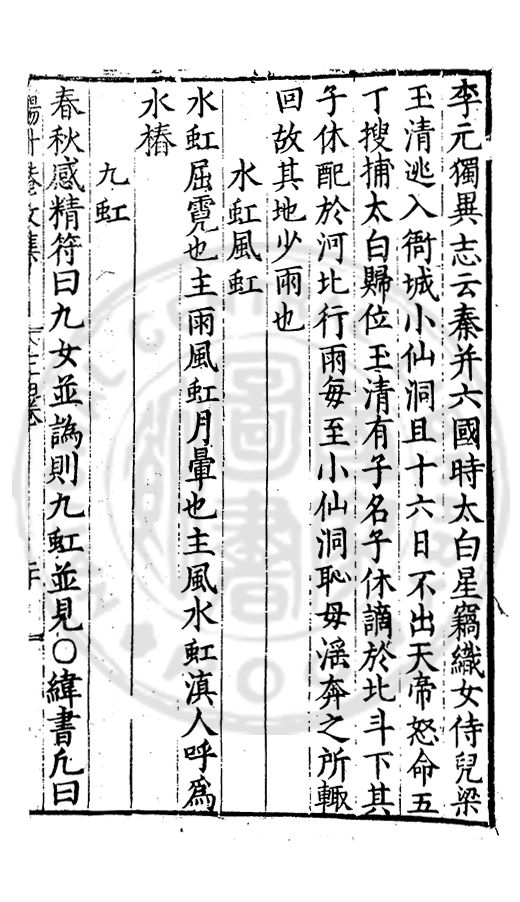 李元獨異志云秦并六國時太白星竊織女侍兒梁
玉清逃入衙城小仙洞且十六日不出天帝怒命五
丁搜捕太白歸位玉清有子名子休謫於北斗下其
子休配於河北行雨每至小仙洞恥母淫奔之所輙
回故其地少雨也
水虹風虹
水虹屈霓也主雨風虹月暈也主風水虹滇人呼為
水樁
九虹
春秋感精符曰九女並譌則九虹並見○緯書凡曰